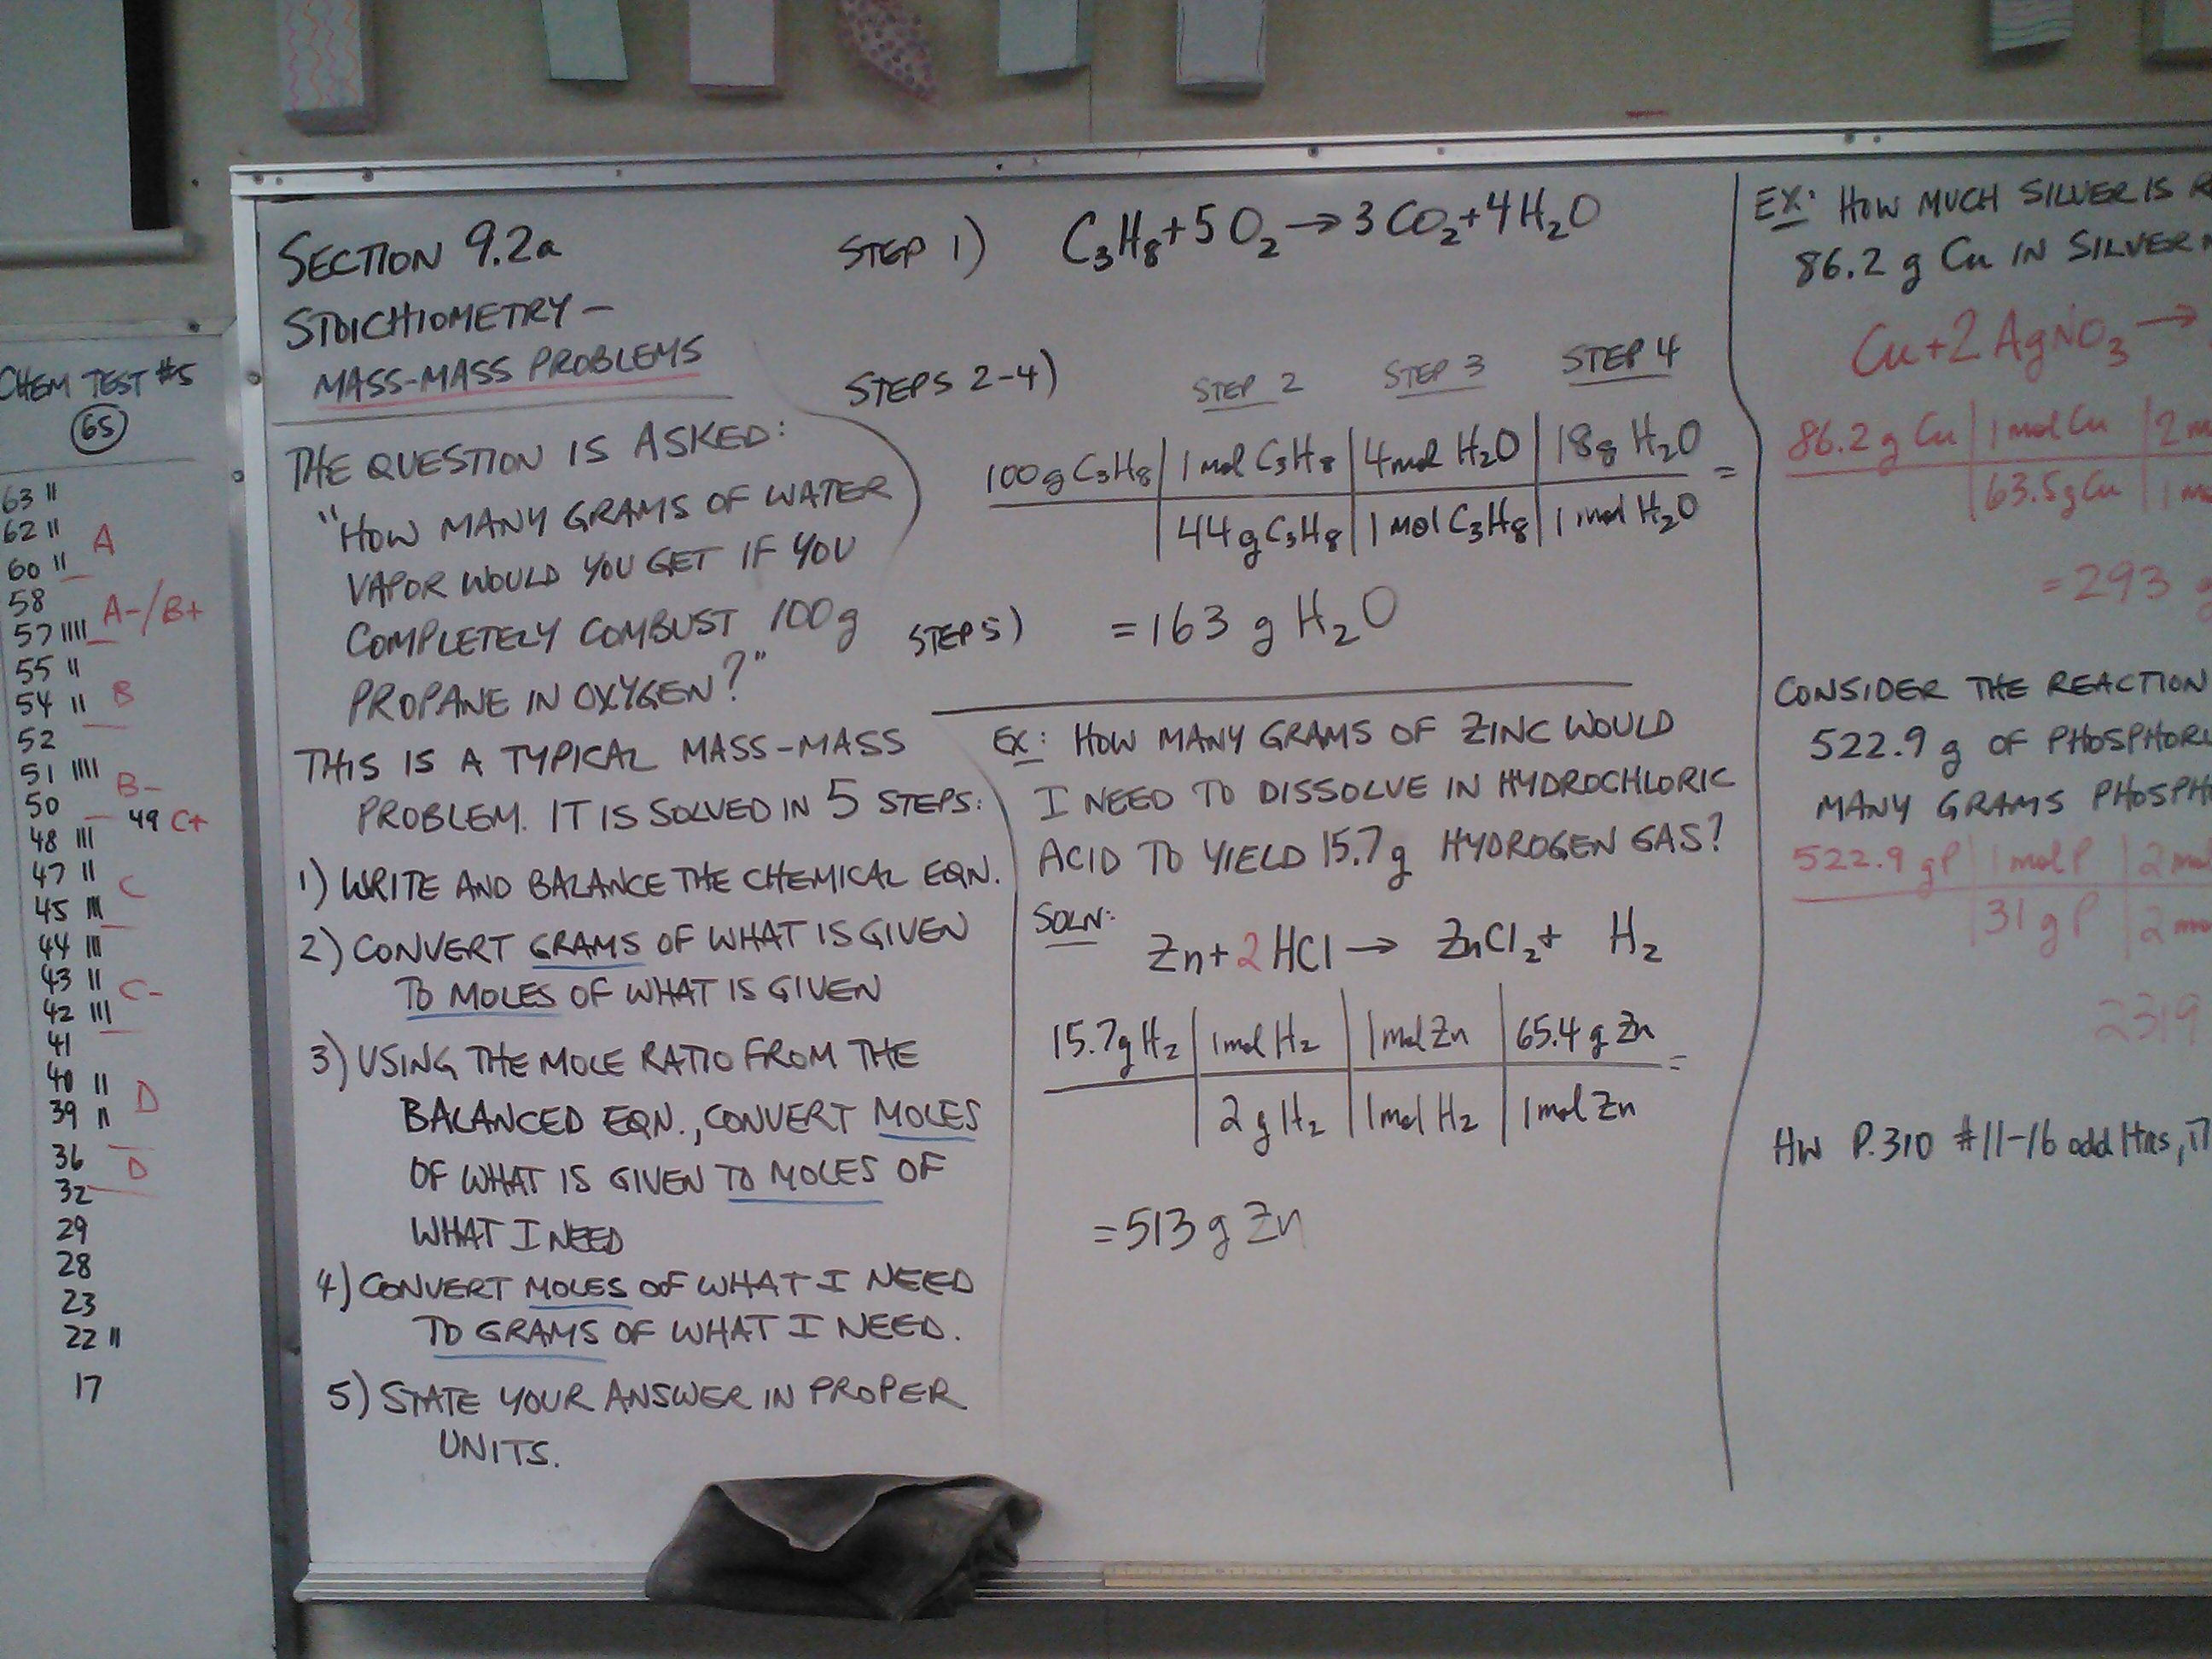 CHEM TEST #5
65
63 II
62 II
A
60 II
58
A-/B+
57 IIII
55 II
54 II
B
52
51 IIII
B-
50
49 C+
48 III
47 II
C
45 III
44 III
43 II
C-
42 III
41
40 II
D
39 II
36
D
32
29
28
23
22 II
17
SECTION 9.2a
STOICHIOMETRY –
MASS-MASS PROBLEMS
THE QUESTION IS ASKED:
"HOW MANY GRAMS OF WATER
VAPOR WOULD YOU GET IF YOU
COMPLETELY COMBUST 100g
PROPANE IN OXYGEN?"
THIS IS A TYPICAL MASS-MASS
PROBLEM. IT IS SOLVED IN 5 STEPS:
1) WRITE AND BALANCE THE CHEMICAL EQN.
2) CONVERT GRAMS OF WHAT IS GIVEN
TO MOLES OF WHAT IS GIVEN
3) USING THE MOLE RATIO FROM THE
BALANCED EQN., CONVERT MOLES
OF WHAT IS GIVEN TO MOLES OF
WHAT I NEED
4) CONVERT MOLES OF WHAT I NEED
TO GRAMS OF WHAT I NEED.
5) STATE YOUR ANSWER IN PROPER
UNITS.
STEP 1) C₃H₈ + 5O₂ → 3CO₂ + 4H₂O
STEPS 2-4) STEP 2 STEP 3 STEP 4
100g C₃H₈ | 1 mol C₃H₈ | 4 mol H₂O | 18g H₂O =
44g C₃H₈ | 1 mol C₃H₈ | 1 mol H₂O
STEP 5) = 163 g H₂O
EX: HOW MANY GRAMS OF ZINC WOULD
I NEED TO DISSOLVE IN HYDROCHLORIC
ACID TO YIELD 15.7g HYDROGEN GAS?
SOLN:
Zn + 2HCl → ZnCl₂ + H₂
15.7g H₂ | 1 mol H₂ | 1 mol Zn | 65.4 g Zn =
2 g H₂ | 1 mol H₂ | 1 mol Zn
= 513 g Zn
EX: HOW MUCH SILVER IS
86.2 g Cu IN SILVER
Cu + 2AgNO₃ →
86.2 g Cu | 1 mol Cu | 2
63.5g Cu | 1
= 293 g
CONSIDER THE REACTION
522.9 g OF
MANY GRAMS
522.9 gP | 1 mol P | 2
31 gP | 2
2319
HW P.310 #11-16 odd ltrs,